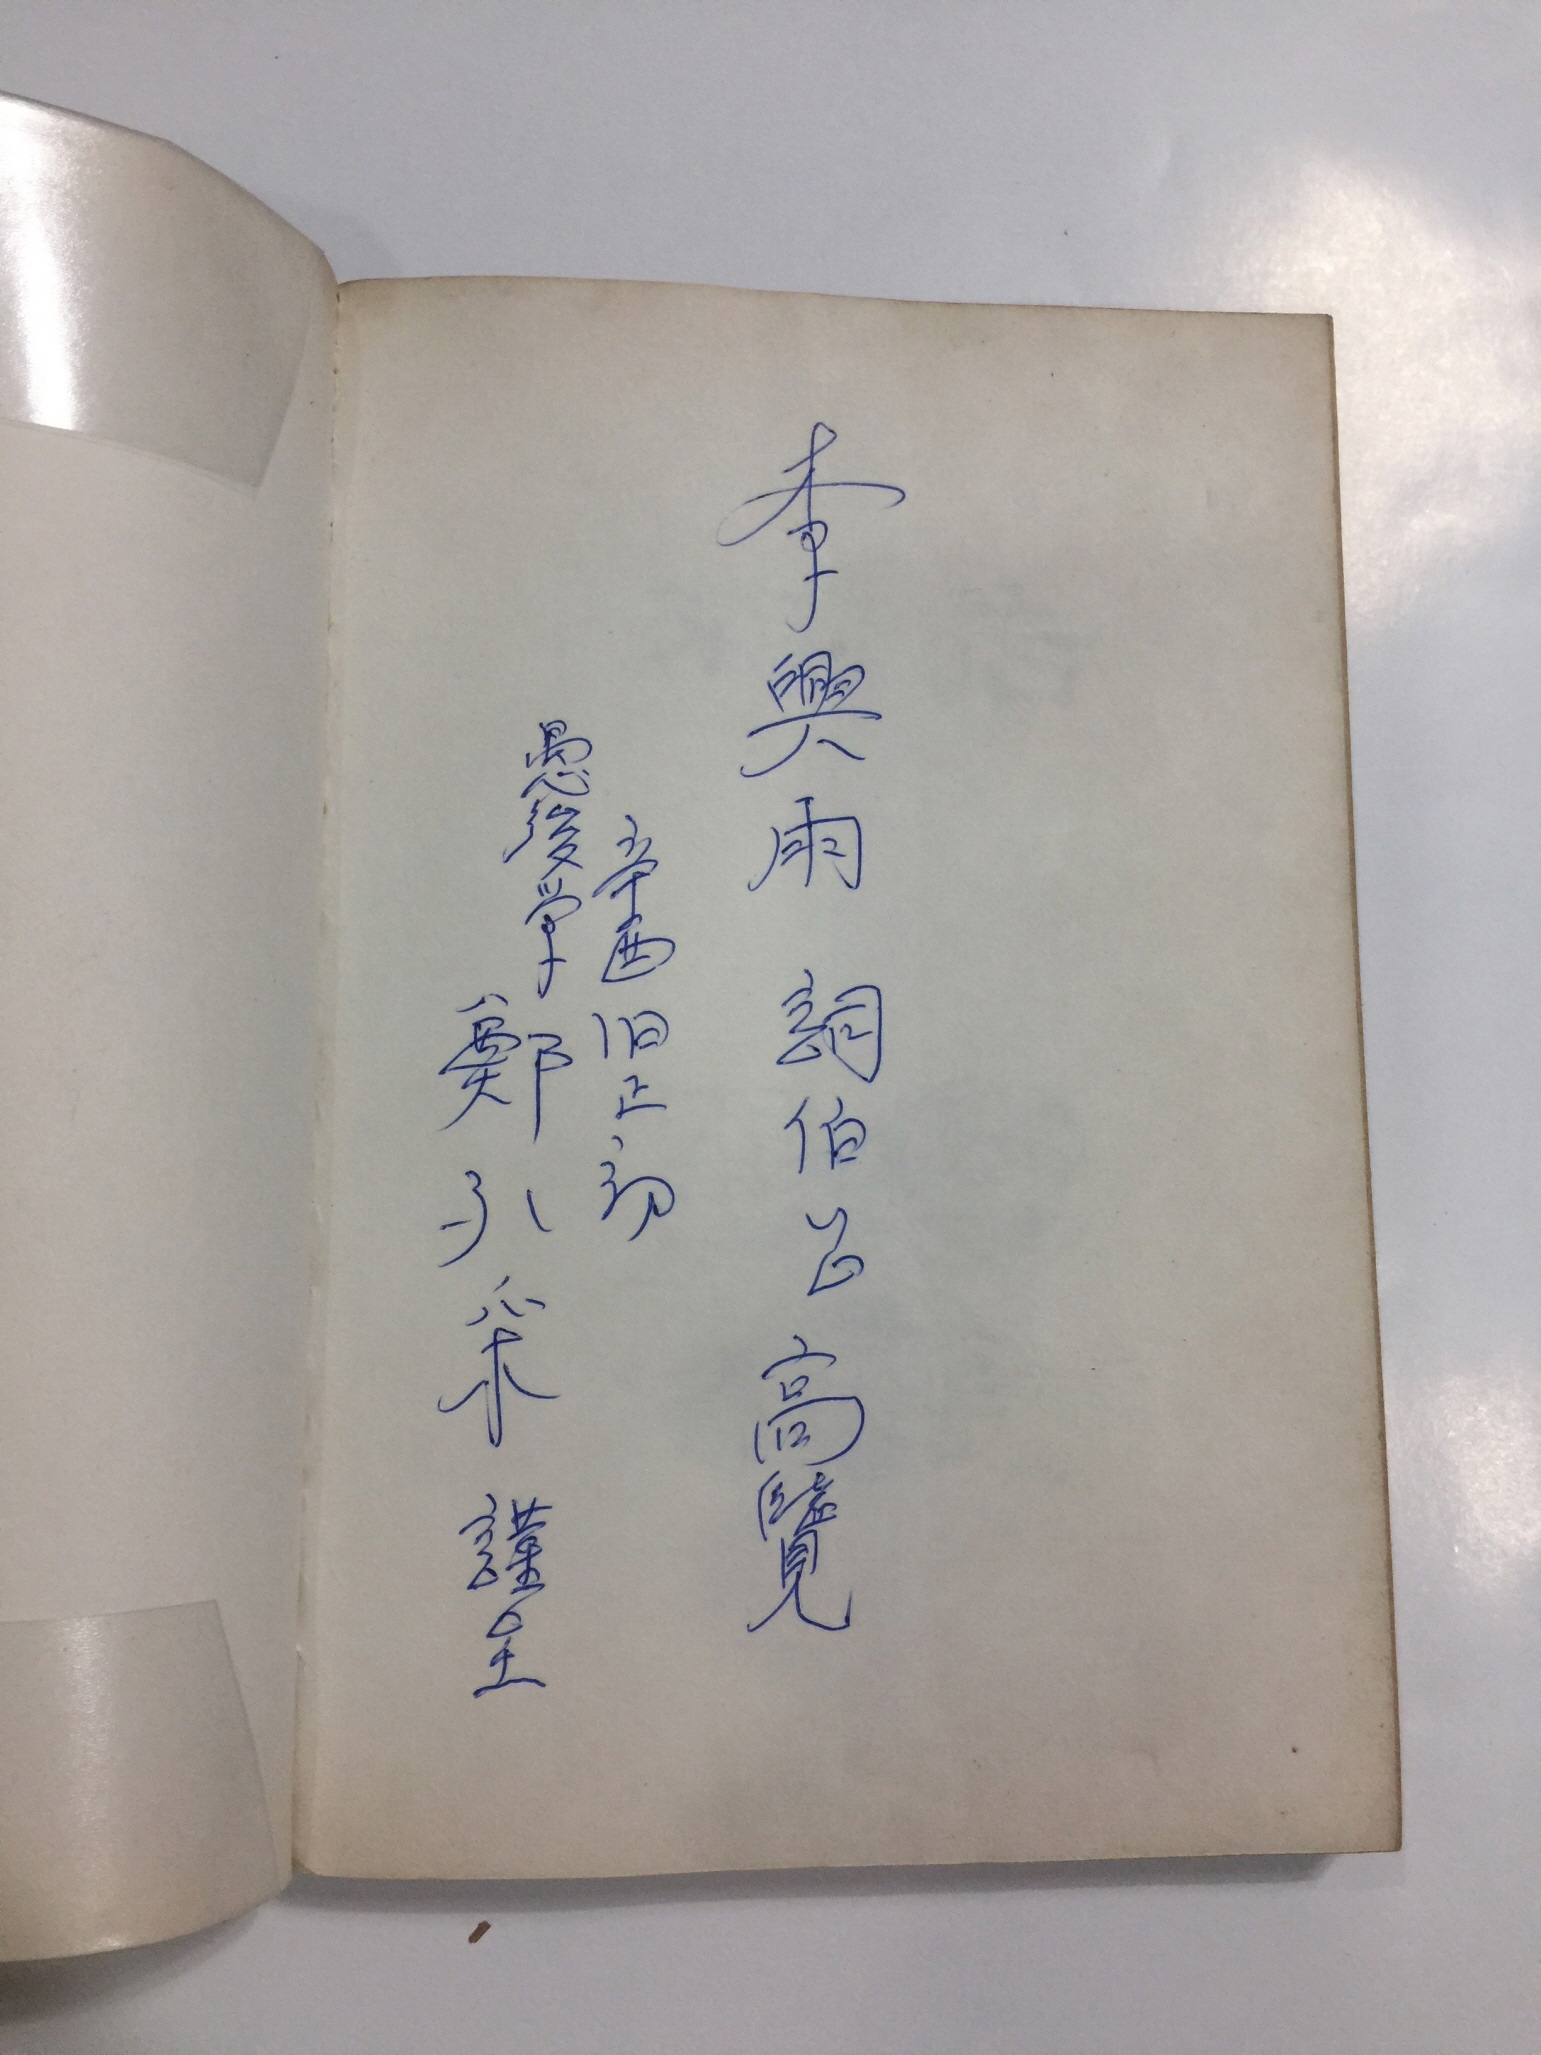 李興雨 詞伯公 高覽
辛酉旧正初
愚後学 鄭引采 謹呈